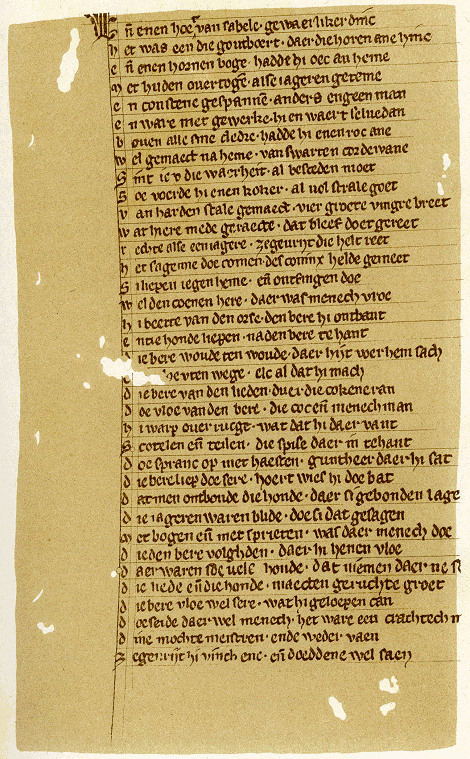 Uñ enen hoet van sabele · gewaerliker dinc
het was een die goutboert · daer die horen ane hinc
eñ enen hornen boge · hadde hi oec an heme
met huden overtogē · alse iageren geteme
en constene gespannē · anders engeen man
en ware met gewerke · hi en waert selve dan
boven alle sine cledre · hadde hi enen roc ane
wel gemaect na heme · van swarten cordewane
Sint ic v die waerheit · al besceden moet
Soe voerde hi enen koker · al vol strale goet
van harden stale gemaect · vier groete vingre breet
wat hi ere mede geraecte · dat bleef doet gereet
rechte alse een iagere · zegevrijt die helt reet
het sagenne doe comen · des conincx helde gemeet
Si liepen iegen heme · eñ ontfingen doe
wel den coenen here · daer was menech vroe
hi beette van den orse · den bere hi ontbant
entie honde liepen · na den bere te hant
die bere woude ten woude · daer hijt wer hem sach
vten wege · elc al dat hi mach
die bere van den lieden · dver die cokene ran
doe vloe van den bere · die coc eñ menech man
hi warp over rucge · wat dat hi daer vant
Scotelen eñ teilen · die spise daer in tehant
doe spranc op met haesten · guntheer daer hi sat
die bere liep doe sere · hoert wies hi doe bat
dat men ontbonde die honde · daer si gebonden lage
die iageren waren blide · doe si dat gesagen
met bogen eñ met sprieten · was daer menech doe
die den bere volghden · daer hi henen vloe
daer waren soe vele honde · dat niemen daer ne s
die liede eñ die honde · maecten geruchte groet
die bere vloe wel sere · wat hi geloepen can
doe seide daer wel menech · het ware een crachtech m
dine mochte meistren · ende weder vaen
Zegevrijt hi vinchene · eñ doeddene wel saen